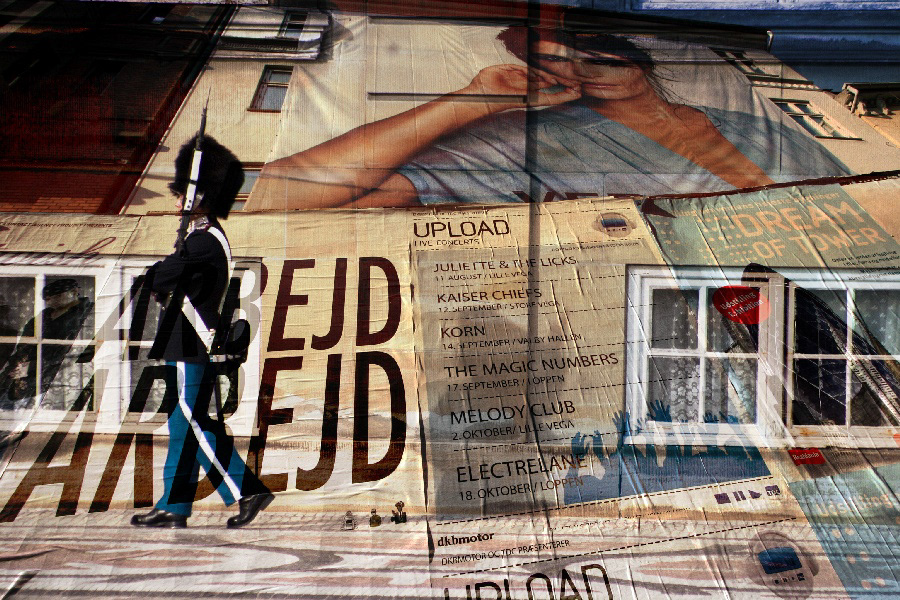 UPLOAD
LIVE CONCERTS
JULIETTE & THE LICKS
11. AUGUST / LILLE VEGA
KAISER CHIEFS
12. SEPTEMBER / STORE VEGA
KORN
14. SEPTEMBER / VALBY HALLEN
THE MAGIC NUMBERS
17. SEPTEMBER / LOPPEN
MELODY CLUB
2. OKTOBER / LILLE VEGA
ELECTRELANE
18. OKTOBER / LOPPEN
ARBEJD
ARBEJD
...DREAM
...OF TOWER
dkbmotor
DKBMOTOR OG TDC PRÆSENTERER
UPLOAD